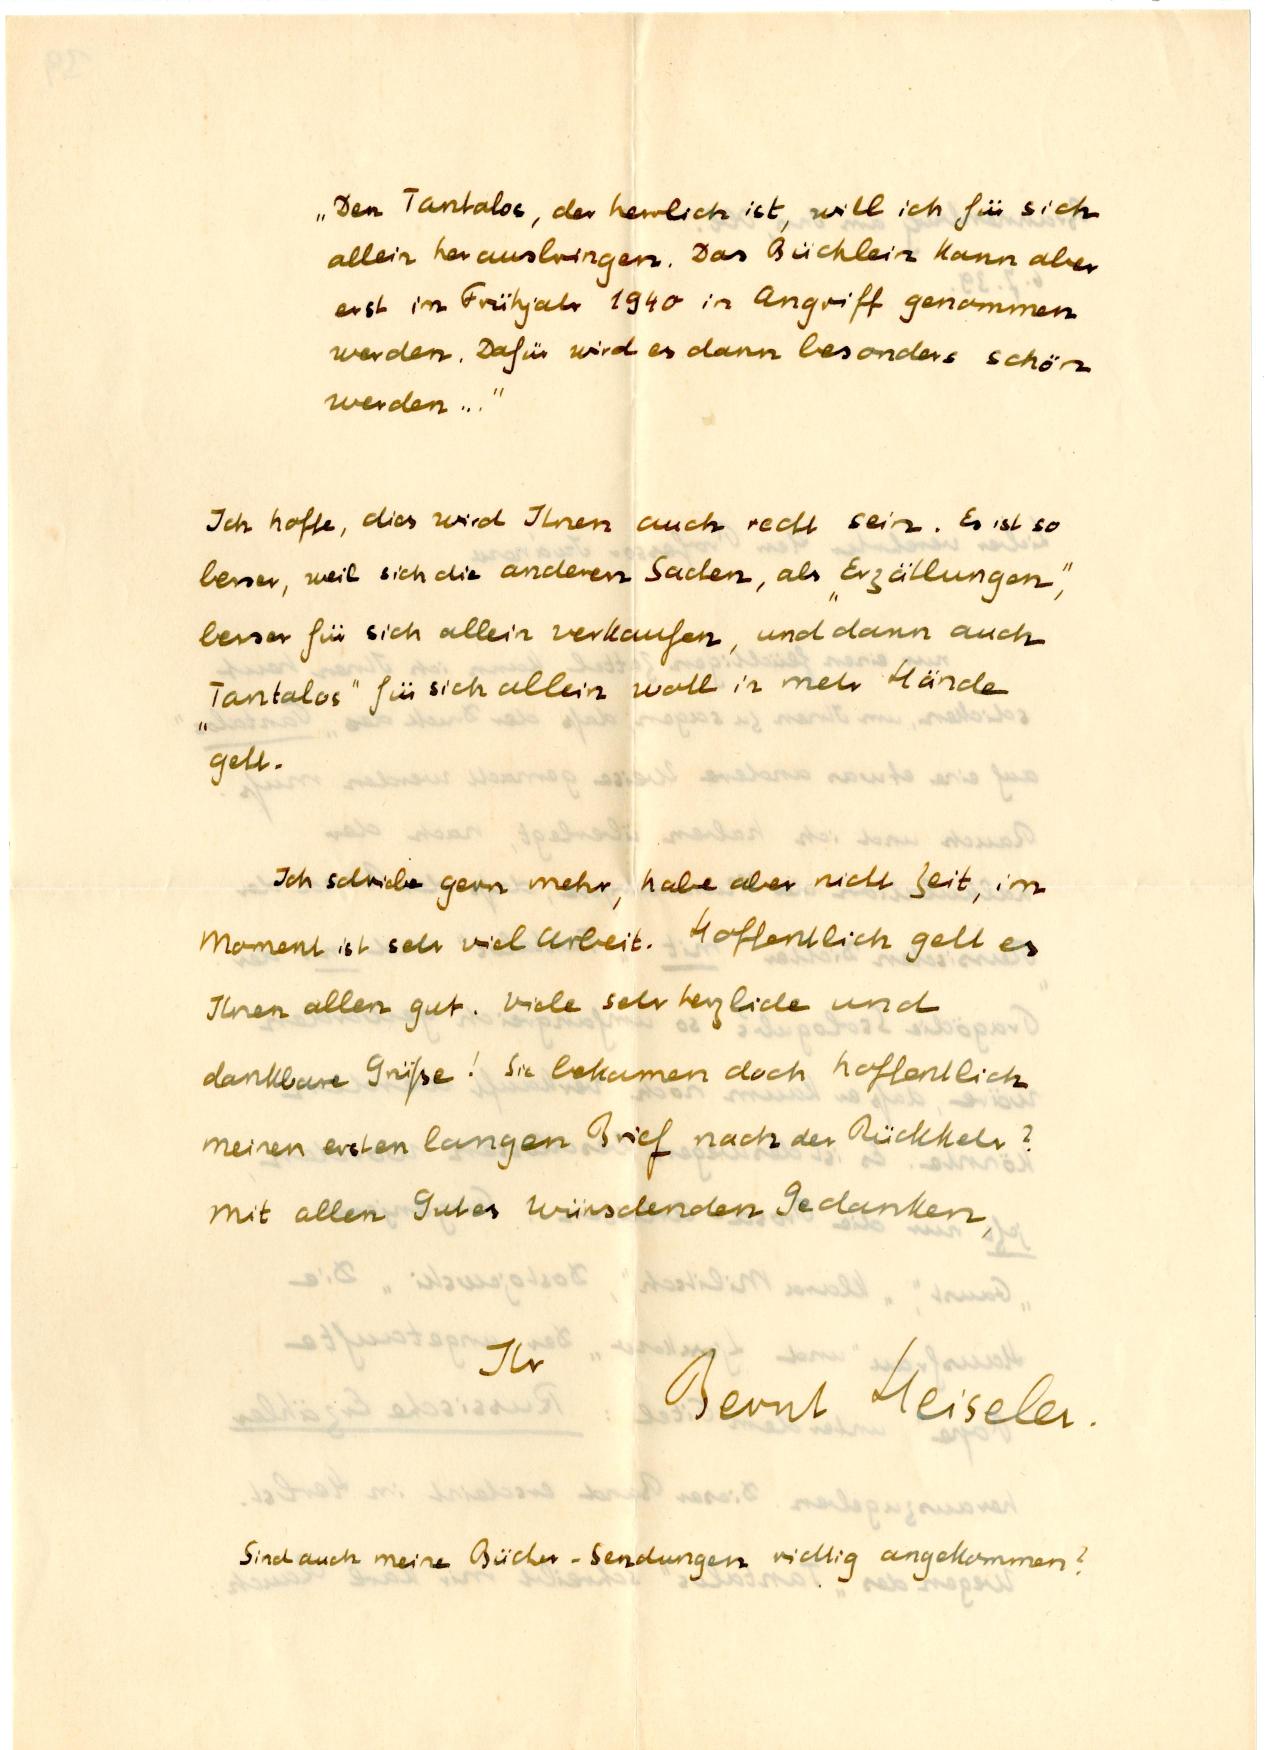 „Den Tantalos, der herrlich ist, will ich für sich
allein herausbringen. Das Büchlein kann aber
erst im Frühjahr 1940 in Angriff genommen
werden. Dafür wird es dann besonders schön
werden..."
Ich hoffe, dies wird Ihnen auch recht sein. Es ist so
besser, weil sich die anderen Sachen, als „Erzählungen",
besser für sich allein verkaufen, und dann auch
„Tantalos" für sich allein wohl in mehr Hände
geht.
Ich schriebe gern mehr, habe aber nicht Zeit, im
Moment ist sehr viel Arbeit. Hoffentlich geht es
Ihnen allen gut. Viele sehr herzliche und
dankbare Grüße! Sie bekamen doch hoffentlich
meinen ersten langen Brief nach der Rückkehr?
Mit allen Gutes wünschenden Gedanken,
Ihr Bernt Heiseler.
Sind auch meine Bücher-Sendungen richtig angekommen?